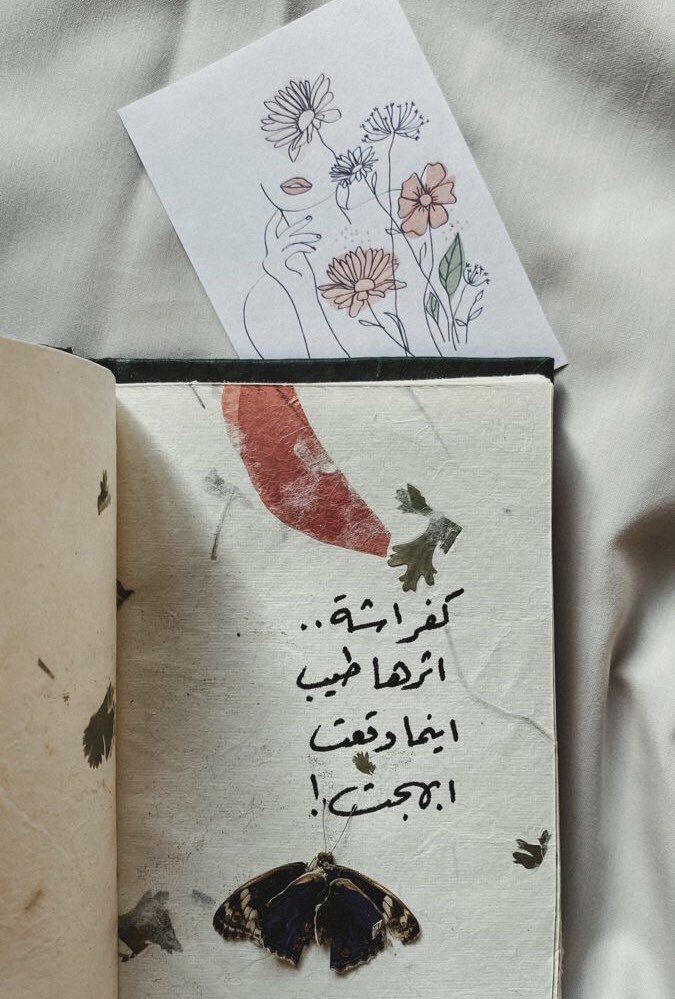 كفراشة..
اثرها طيب
اينما وقعت
ابهجت!